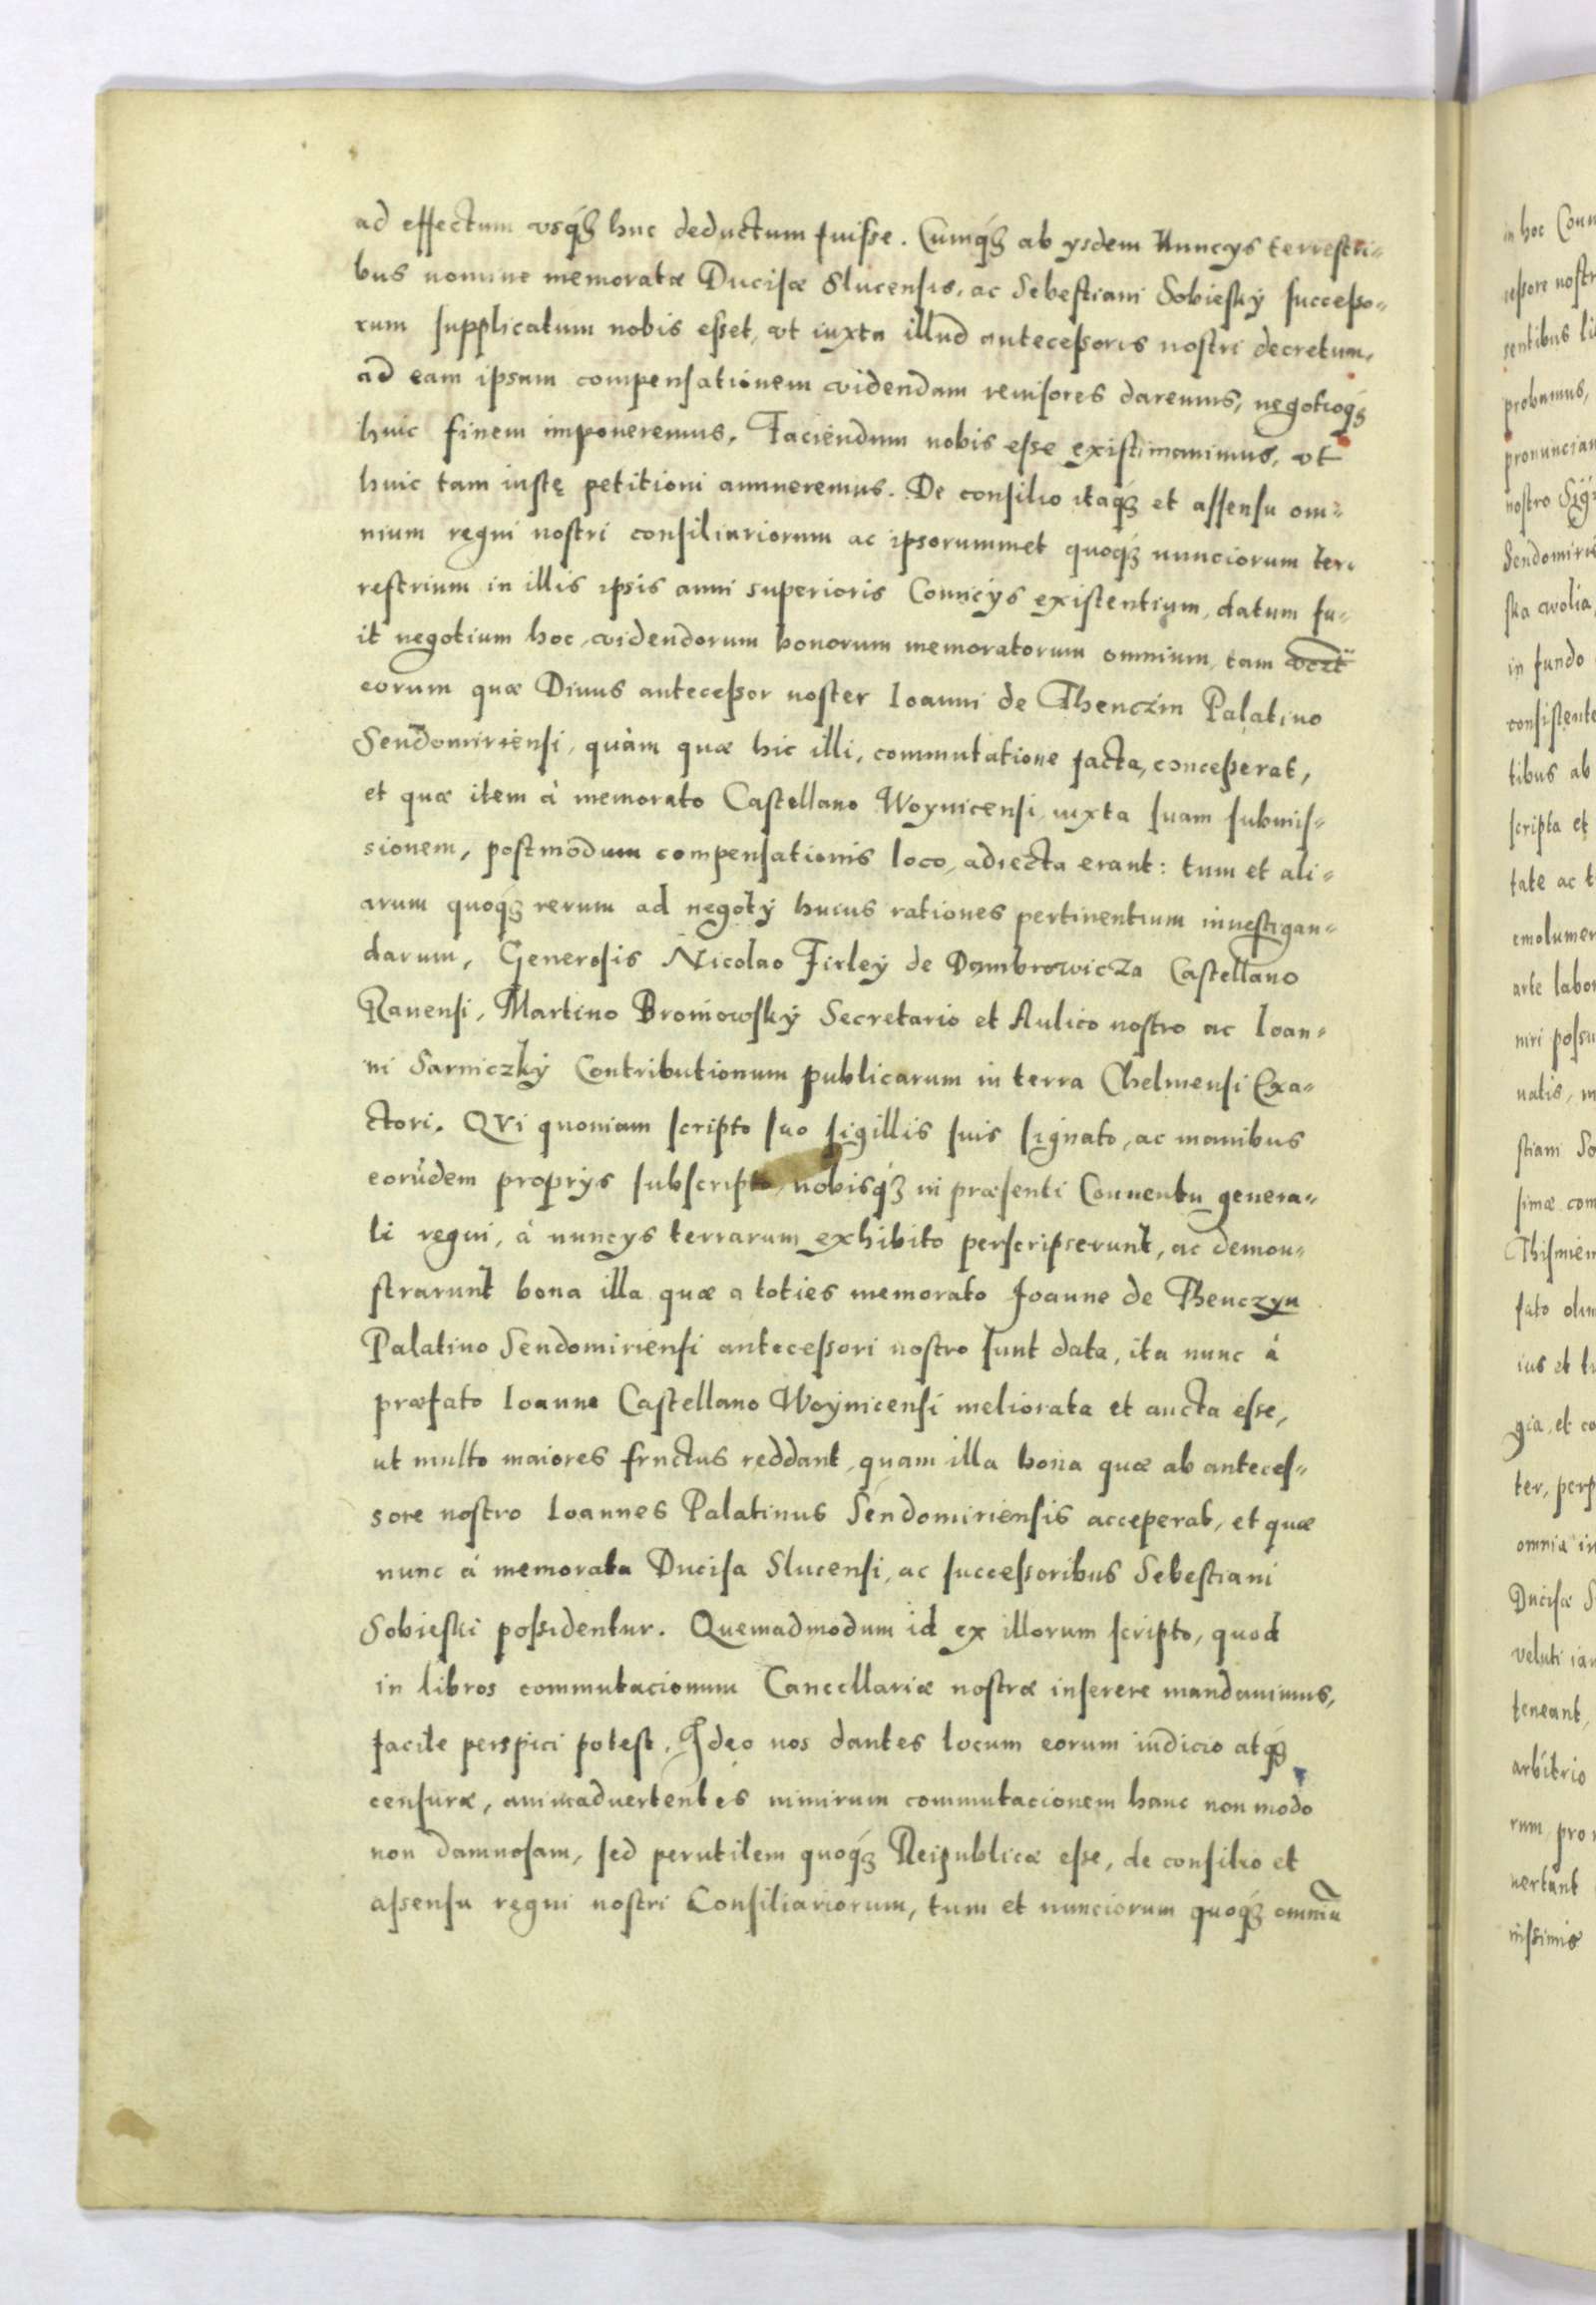 ad effectum vsq́ꝫ huc deductum fuisse. Cumq́ꝫ ab ysdem Nuncys terrestri-
bus nomine memoratæ Ducissæ Slucensis, ac Sebestiani Sobiesky successo-
rum supplicatum nobis esset, vt iuxta illud antecessoris nostri decretum,
ad eam ipsam compensationem videndam reuisores daremus, negotioq́ꝫ
huic finem imponeremus. Faciendum nobis esse existimauimus, vt
huic tam iustę petitioni annueremus. De consilio itaq́ꝫ et assensu om-
nium regni nostri consiliariorum ac ipsorummet quoq́ꝫ nunciorum ter-
restrium in illis ipsis anni superioris Comicys existentium, datum fu-
it negotium hoc, videndorum bonorum memoratorum omnium, tam
eorum quæ Diuus antecessor noster Ioanni de Thenczin Palatino
Sendomiriensi, quàm quæ hic illi, commutatione facta, concesserat,
et quæ item à memorato Castellano Woynicensi, iuxta suam submis-
sionem, postmodum compensationis loco, adiecta erant: tum et ali-
arum quoq́ꝫ rerum ad negoty huius rationes pertinentium inuestigan-
darum, Generosis Nicolao Firley de Dombrowicza Castellano
Rauensi, Martino Broniowsky Secretario et Aulico nostro ac Ioan-
ni Sarniczky Contributionum publicarum in terra Chelmensi Exa-
ctori. QVi quoniam scripto suo sigillis suis signato, ac manibus
eorūdem proprys subscripto, nobisq́ꝫ in præsenti Conuentu genera-
li regni, à nuncys terrarum exhibito perscripserunt, ac demon-
strarunt bona illa quæ a toties memorato Joanne de Thenczyn
Palatino Sendomiriensi antecessori nostro sunt data, ita nunc à
præfato Ioanne Castellano Woynicensi meliorata et aucta esse,
ut multo maiores fructus reddant, quam illa bona quæ ab anteces-
sore nostro Ioannes Palatinus Sendomiriensis acceperat, et quæ
nunc à memorata Ducissa Slucensi, ac successoribus Sebestiani
Sobieski possidentur. Quemadmodum id ex illorum scripto, quod
in libros commutacionum Cancellariæ nostræ inserere mandauimus,
facile perspici potest. Ideo nos dantes locum eorum iudicio atq́ꝫ
censuræ, animaduertentes nimirum commutacionem hanc non modo
non damnosam, sed perutilem quoq́ꝫ Reipublicæ esse, de consilio et
assensu regni nostri Consiliariorum, tum et nunciorum quoq́ꝫ omniū